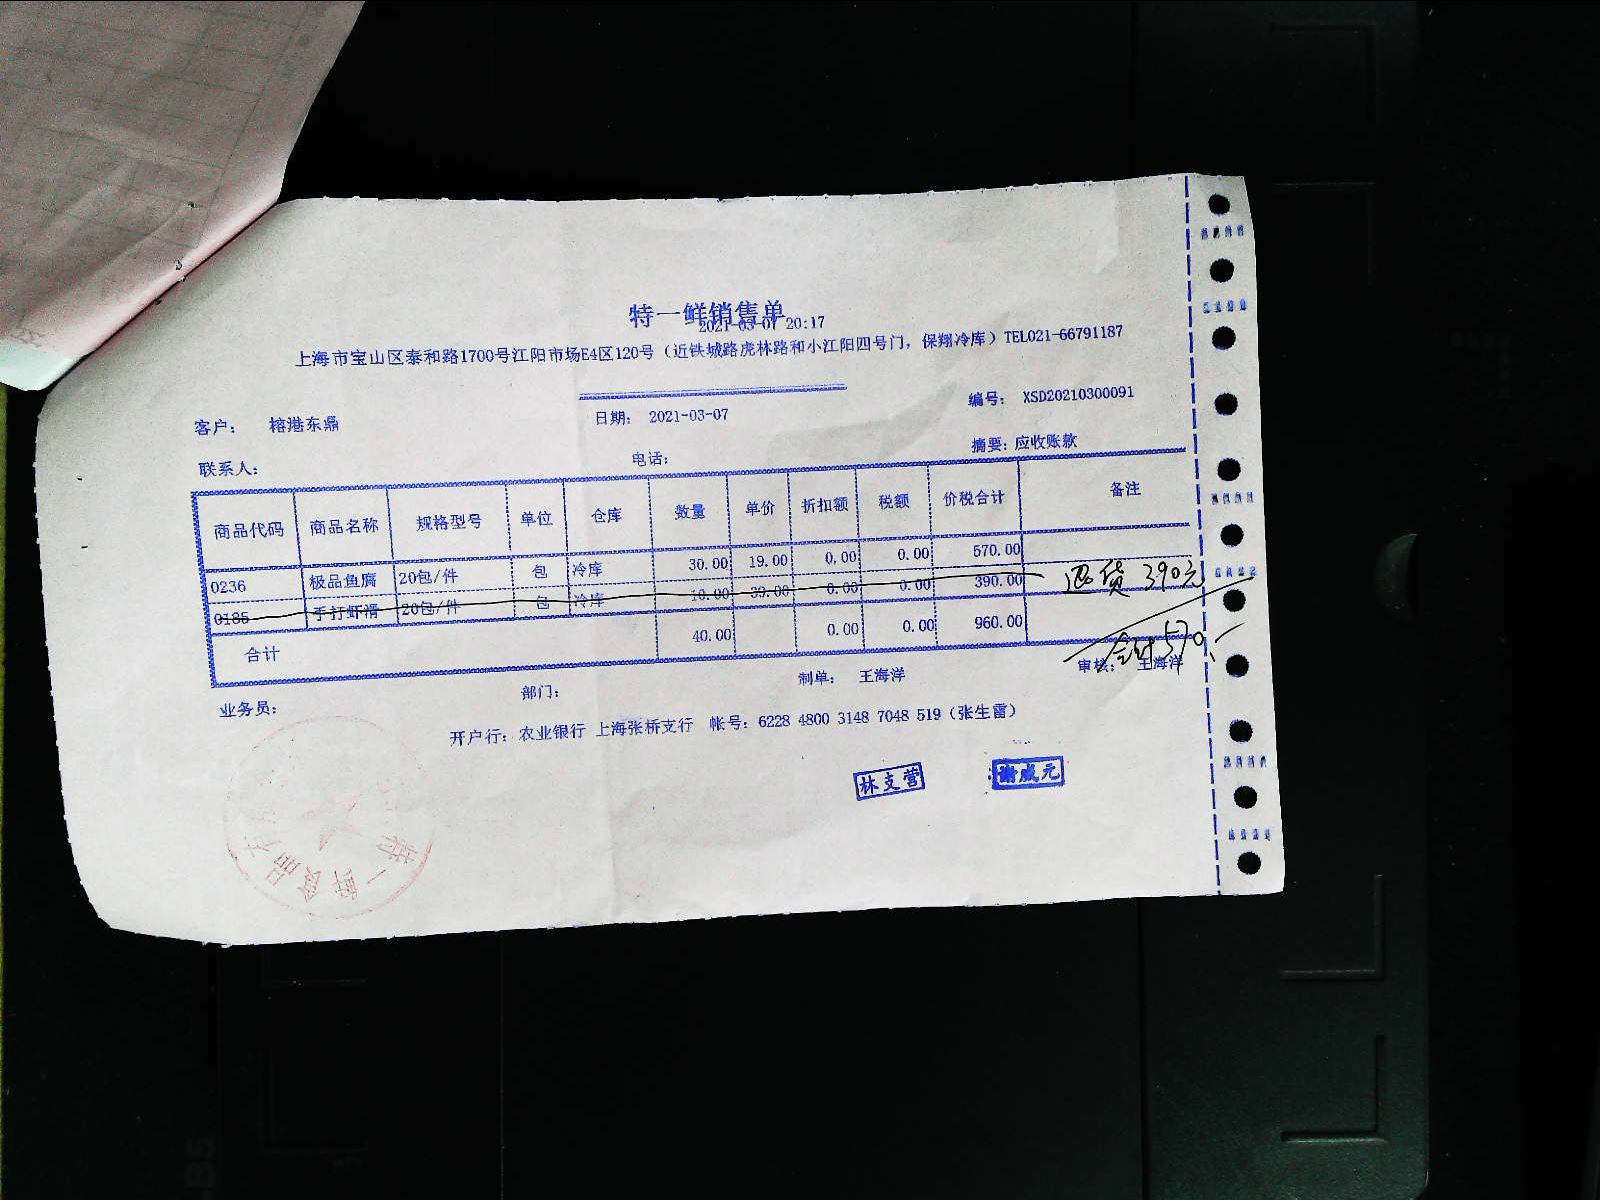 特一鲜销售单
2021-03-07 20:17
上海市宝山区泰和路1700号江阳市场E4区120号（近铁城路虎林路和小江阳四号门，保翔冷库）TEL021-66791187
客户： 榕港东鼎 日期： 2021-03-07 编号： XSD20210300091
联系人： 电话： 摘要：应收账款
商品代码 商品名称 规格型号 单位 仓库 数量 单价 折扣额 税额 价税合计 备注
0236 极品鱼腐 20包/件 包 冷库 30.00 19.00 0.00 0.00 570.00
0185 手打虾滑 20包/件 包 冷库 10.00 39.00 0.00 0.00 390.00 退货 390元
合计 40.00 0.00 0.00 960.00
合计570.
业务员： 部门： 制单： 王海洋 审核： 王海洋
开户行：农业银行 上海张桥支行 帐号：6228 4800 3148 7048 519（张生雷）
林支营
谢威元
特一鲜食品